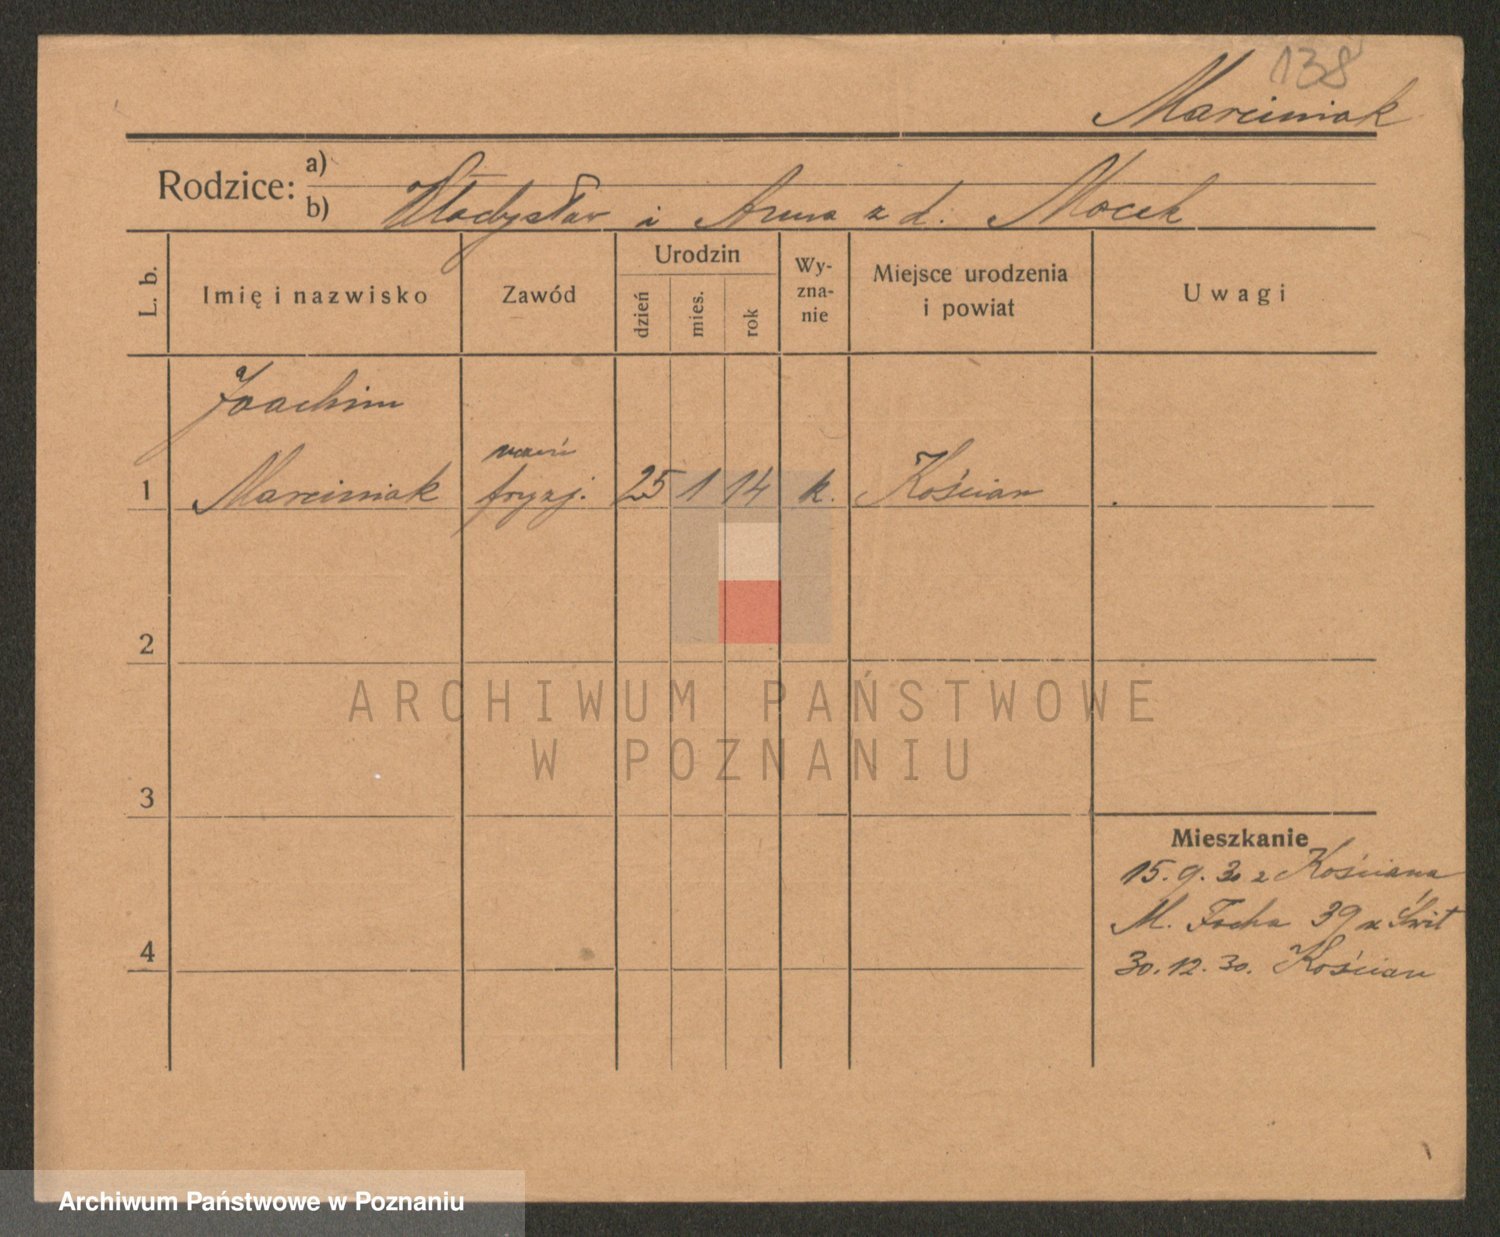 138
Marciniak
Rodzice: a)
b) Władysław i Anna z d. Mocek
L. b.
Imię i nazwisko
Zawód
Urodzin
dzień
mies.
rok
Wy-
zna-
nie
Miejsce urodzenia
i powiat
Uwagi
Joachim
1 Marciniak
uczeń
fryzj.
25 1 14 k. Kościan
2
3
4
Mieszkanie
15.9.30 z Kościana
M. Focha 39 u Świt
30.12.30. Kościan
ARCHIWUM PAŃSTWOWE
W POZNANIU
Archiwum Państwowe w Poznaniu